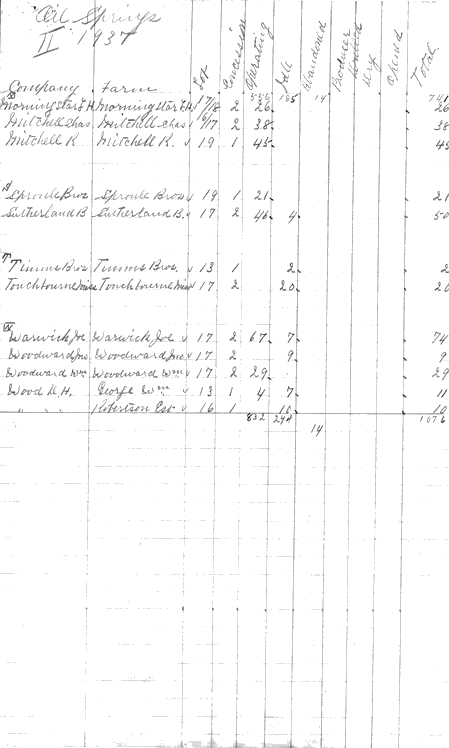 Oil Springs
II 1937
Company Farm Lot Concession Operating Idle Abandoned Producer Drilled Dry Opened Total
556 185 14 741
Morningstar F.H. Morningstar F.H. 17/18 2 26 26
Mitchell Chas Mitchell Chas 16/17 2 38 38
Mitchell K Mitchell K. 19 1 45 45
S
Sproule Bros Sproule Bros 19 1 21 21
Sutherland B Sutherland B. 17 2 46 4 50
T
Timms Bros Timms Bros. 13 1 2 2
Touchbourne Touchbourne 17 2 20 20
W
Warwick Joe Warwick Joe 17 2 67 7 74
Woodward Jno. Woodward Jno. 17 2 9 9
Woodward Wm Woodward Wm 17 2 29 29
Wood D.H. George Wm 13 1 4 7 11
" " " Robertson Est 16 1 10 10
832 244 1076
14